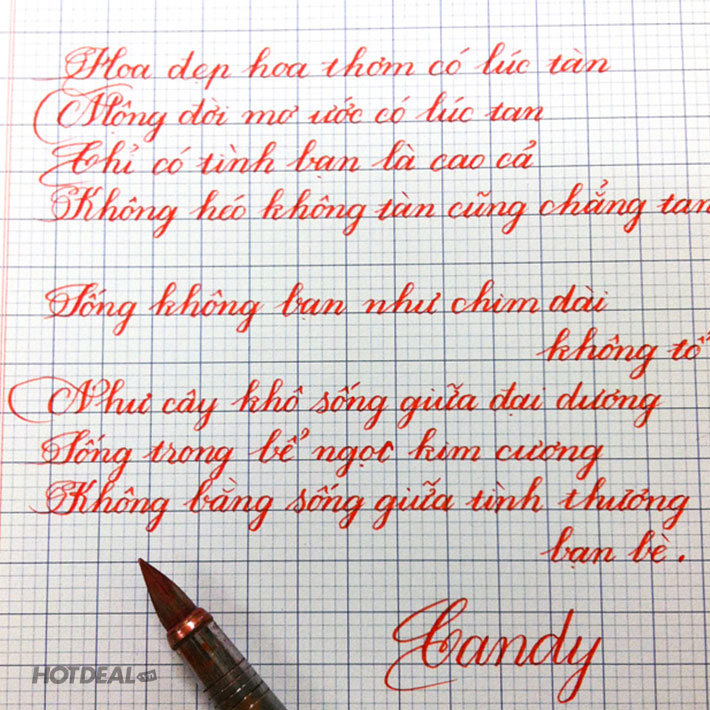 Hoa đẹp hoa thơm có lúc tàn
Mộng đời mơ ước có lúc tan
Chỉ có tình bạn là cao cả
Không héo không tàn cũng chẳng tan
Sống không bạn như chim dài
không tổ
Như cây khô sống giữa đại dương
Sống trong bể ngọc kim cương
Không bằng sống giữa tình thương
bạn bè.
Candy
HOTDEAL.vn